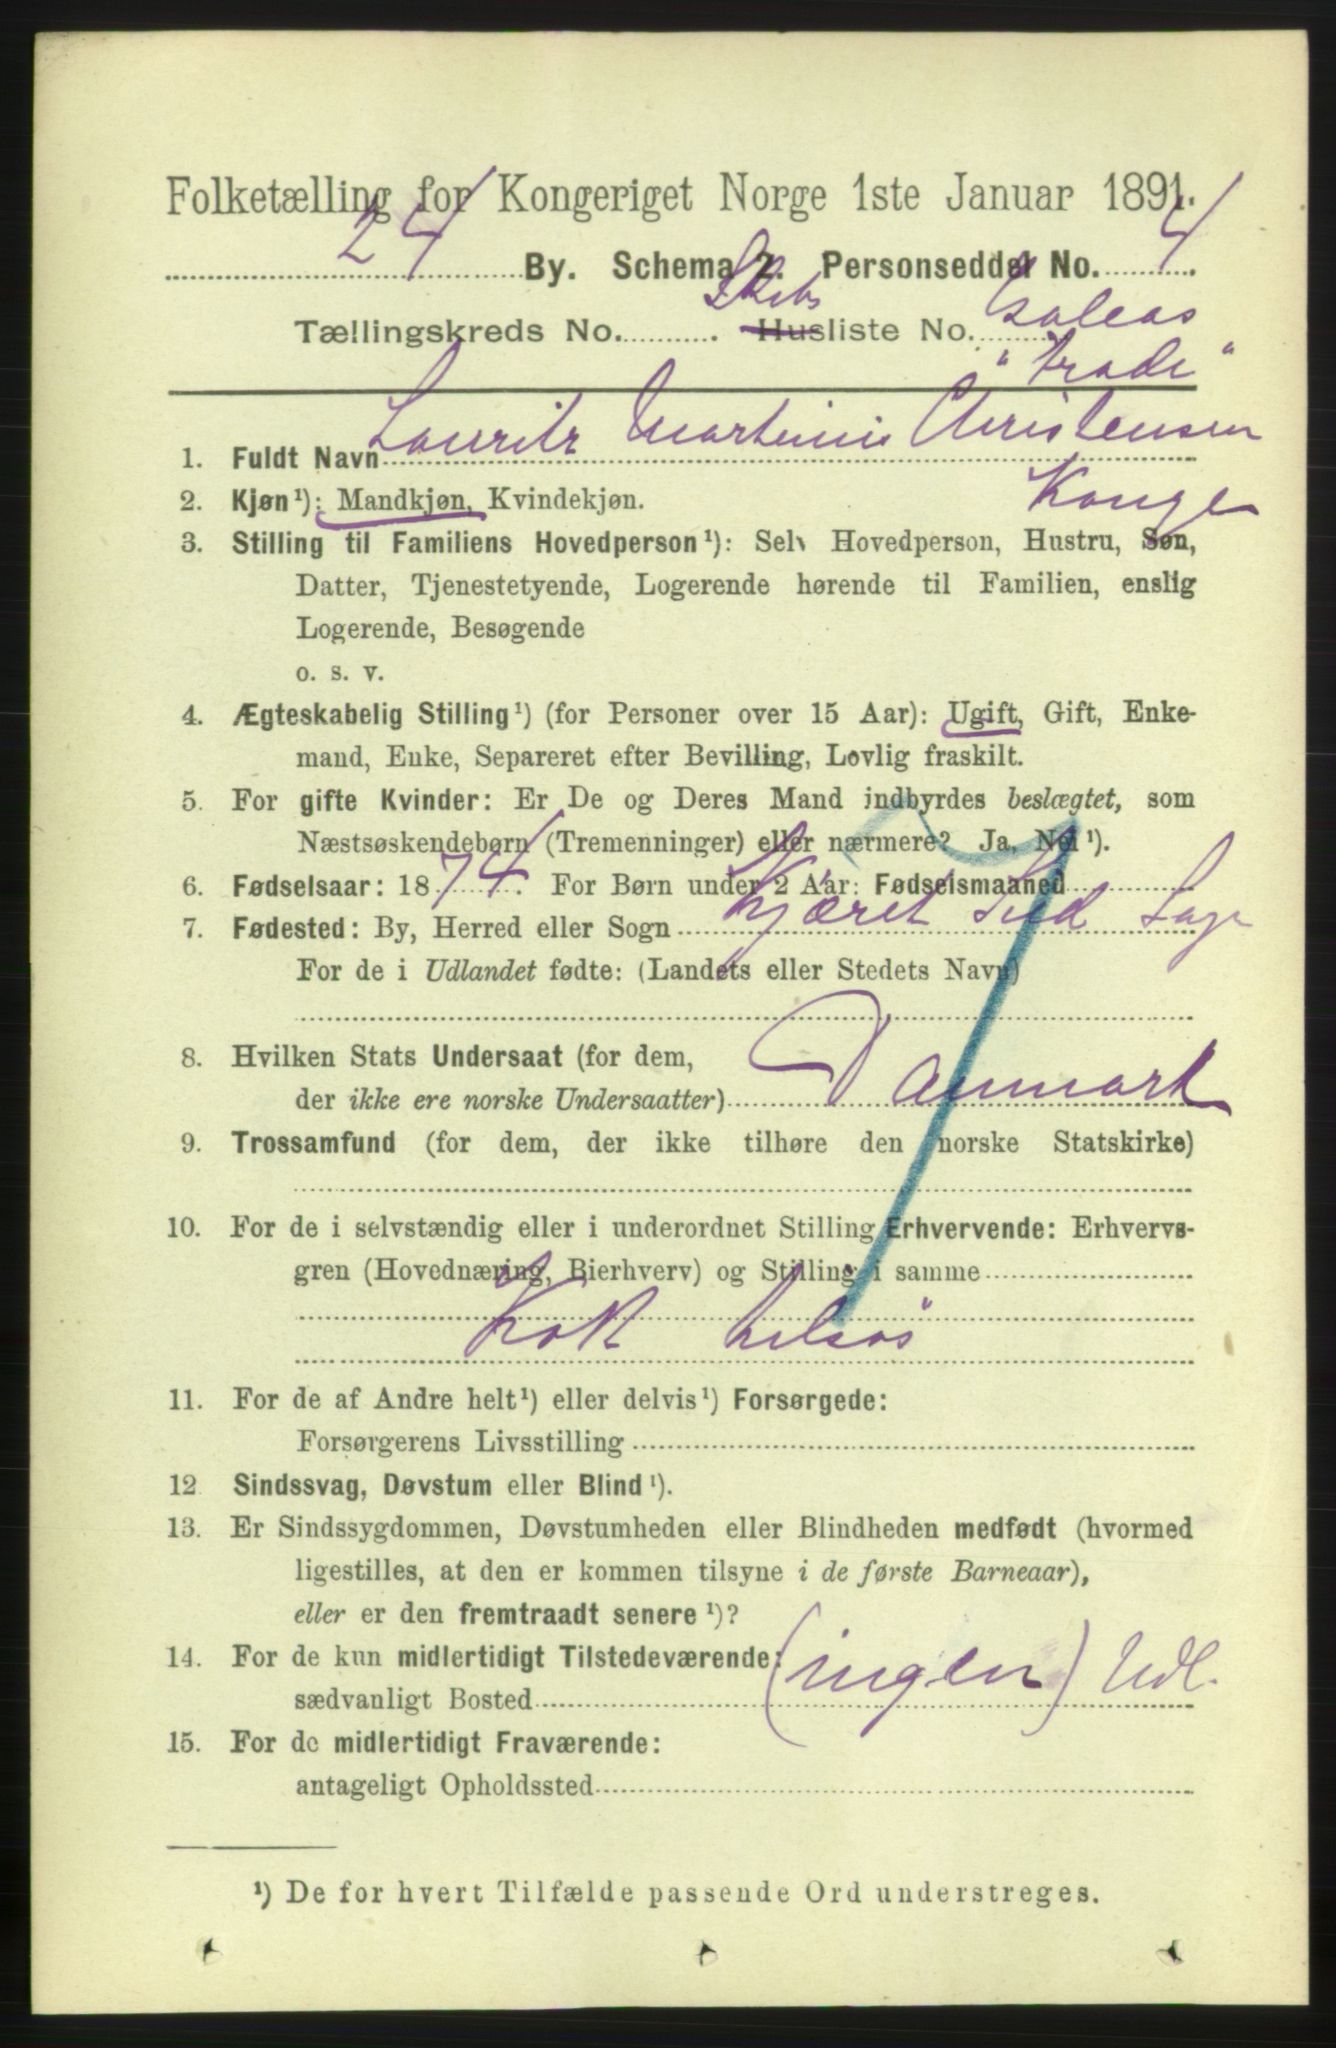 Folketælling for Kongeriget Norge 1ste Januar 1891.
24 By. Schema 2. Personseddel No. 4
Tællingskreds No. . Skibs Husliste No. Galeas
"Trade"
1. Fuldt Navn Lauritz Martinus Christensen
Konge
2. Kjøn¹): Mandkjøn, Kvindekjøn.
3. Stilling til Familiens Hovedperson¹): Selv Hovedperson, Hustru, Søn,
Datter, Tjenestetyende, Logerende hørende til Familien, enslig
Logerende, Besøgende
o. s. v.
4. Ægteskabelig Stilling¹) (for Personer over 15 Aar): Ugift, Gift, Enke-
mand, Enke, Separeret efter Bevilling, Lovlig fraskilt.
5. For gifte Kvinder: Er De og Deres Mand indbyrdes beslægtet, som
Næstsøskendebørn (Tremenninger) eller nærmere? Ja, Nei¹).
6. Fødselsaar: 1874. For Børn under 2 Aar: Fødselsmaaned
7. Fødested: By, Herred eller Sogn
For de i Udlandet fødte: (Landets eller Stedets Navn)
8. Hvilken Stats Undersaat (for dem,
der ikke ere norske Undersaatter) Danmark
9. Trossamfund (for dem, der ikke tilhøre den norske Statskirke)
10. For de i selvstændig eller i underordnet Stilling Erhvervende: Erhvervs-
gren (Hovednæring, Bierhverv) og Stilling i samme
Kok tilsøs
11. For de af Andre helt¹) eller delvis¹) Forsørgede:
Forsørgerens Livsstilling
12 Sindssvag, Døvstum eller Blind¹).
13. Er Sindssygdommen, Døvstumheden eller Blindheden medfødt (hvormed
ligestilles, at den er kommen tilsyne i de første Barneaar),
eller er den fremtraadt senere¹)?
14. For de kun midlertidigt Tilstedeværende:
sædvanligt Bosted (ingen) Udl.
15. For de midlertidigt Fraværende:
antageligt Opholdssted
¹) De for hvert Tilfælde passende Ord understreges.